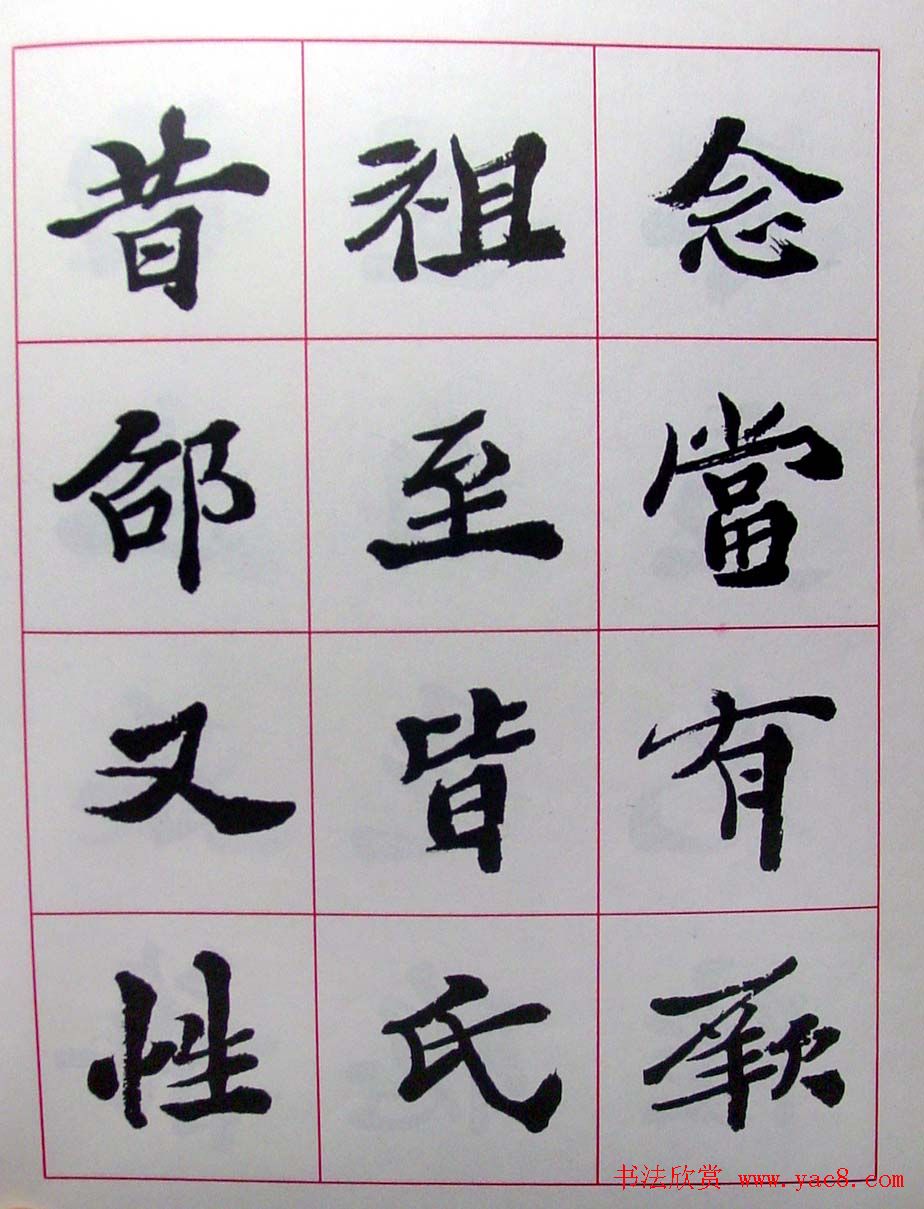 念當有厥
祖至皆氏
昔又性
书法欣赏 www.yac8.com